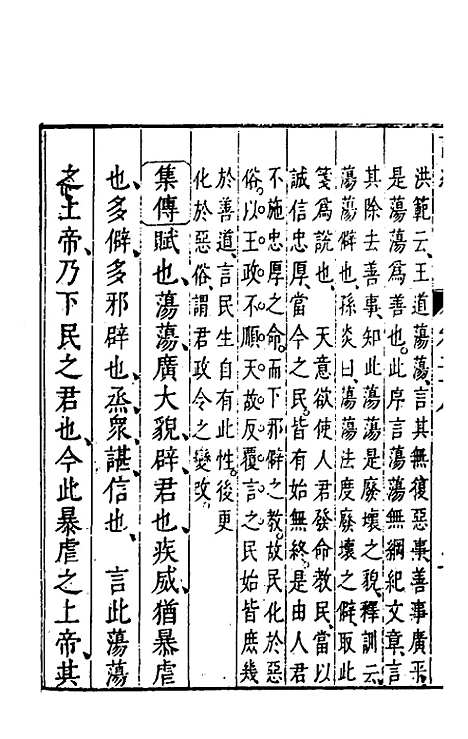 洪範云、王道蕩蕩、言其無復惡事、善事廣平、
是蕩蕩爲善也。此序言蕩蕩無綱紀文章、言
其除去善事、知此蕩蕩是廢壞之貌、釋訓云、
蕩蕩僻也、孫炎曰、蕩蕩法度廢壞之僻、取此
箋爲說也、　天意欲使人君發命教民、當以
誠信忠厚、當今之民、皆有始無終、是由人君
不施忠厚之命、而下邪僻之教、故民化於惡
俗。以王政不順天、故反覆言之、民始皆庶幾
於善道、言民生自有此性、後更
化於惡俗、謂君政令之變改、
集傳賦也、蕩蕩、廣大貌、辟、君也、疾威、猶暴虐
也、多僻、多邪辟也、烝、衆、諶、信也、　言此蕩蕩
之上帝、乃下民之君也、今此暴虐之上帝、其